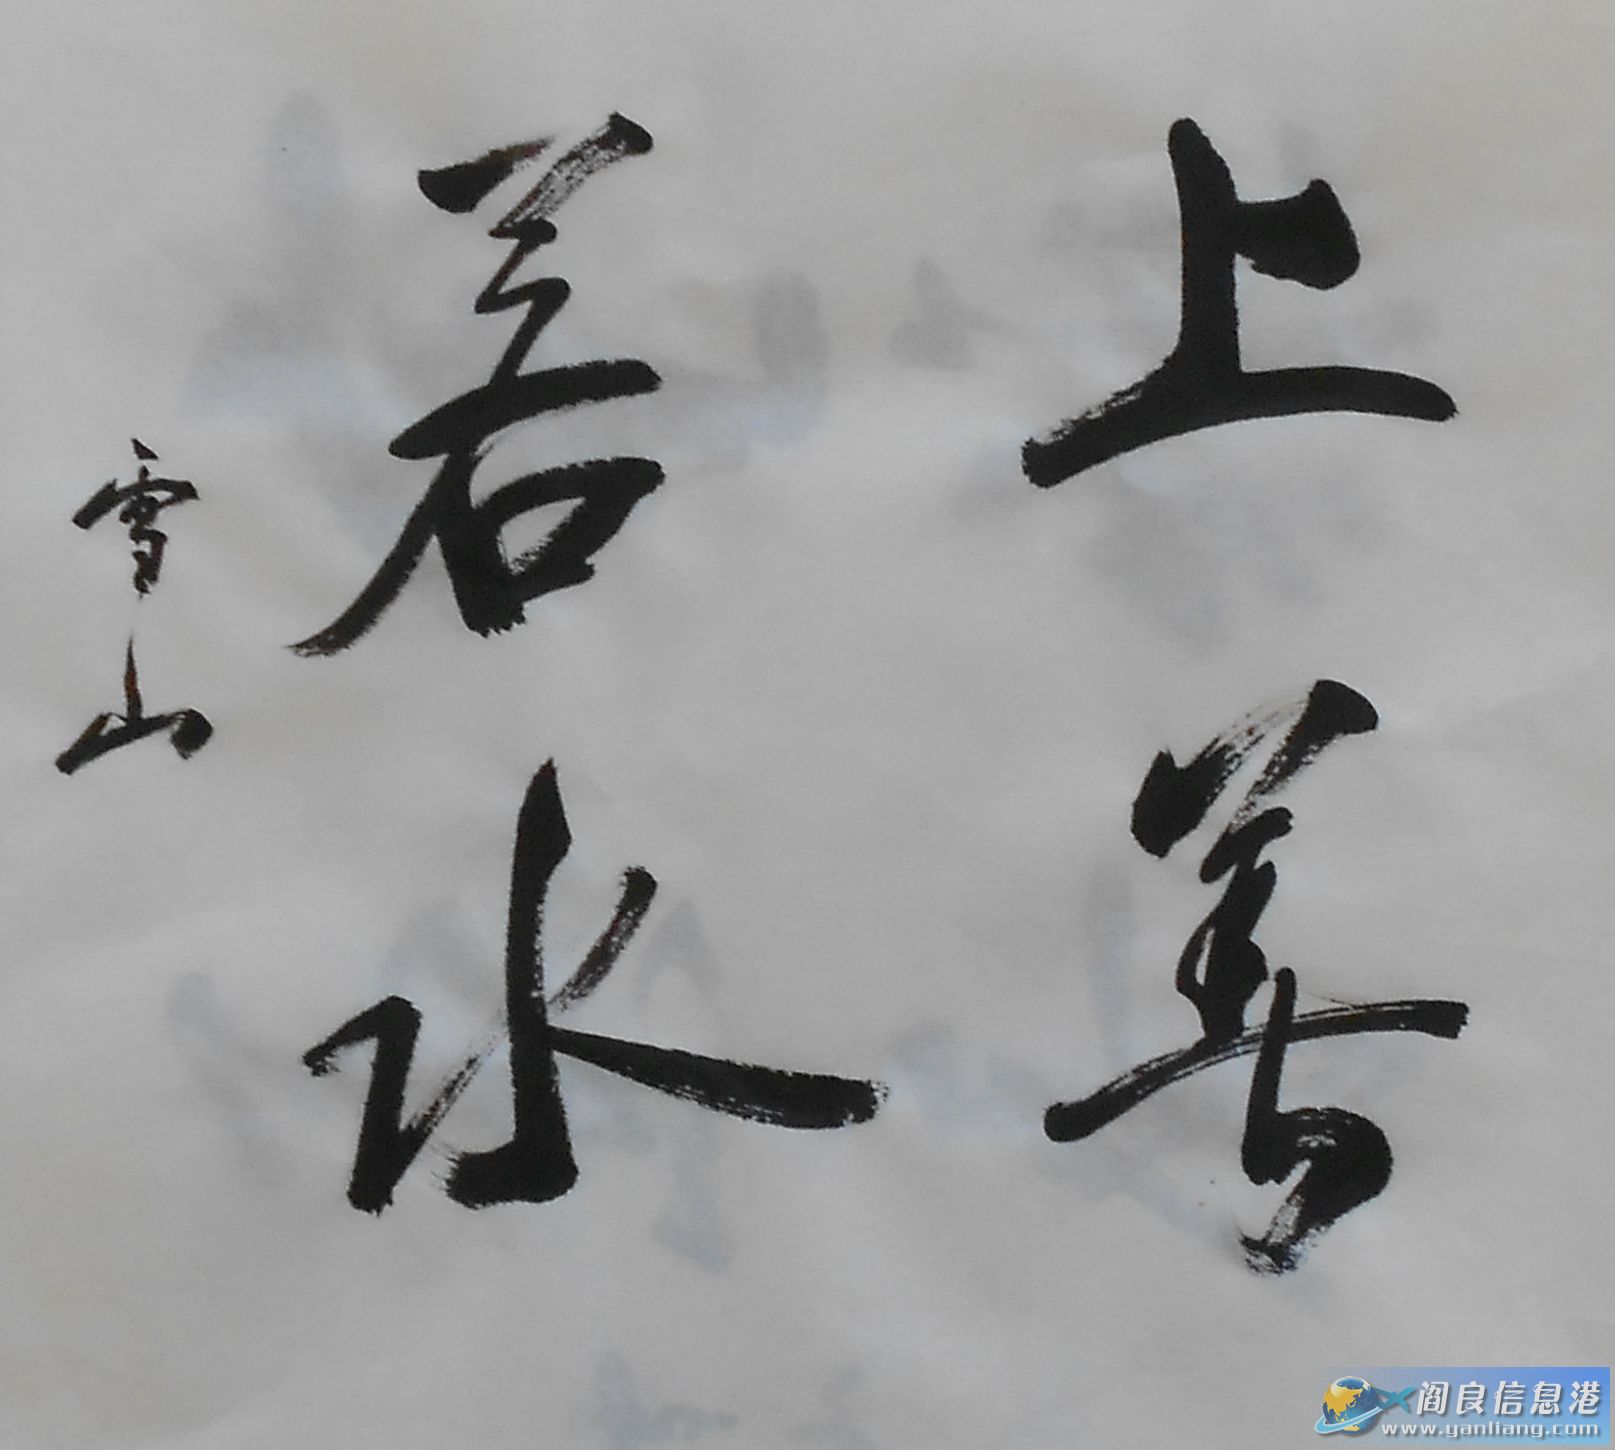 上善
若水
雪山
阎良信息港
www.yanliang.com